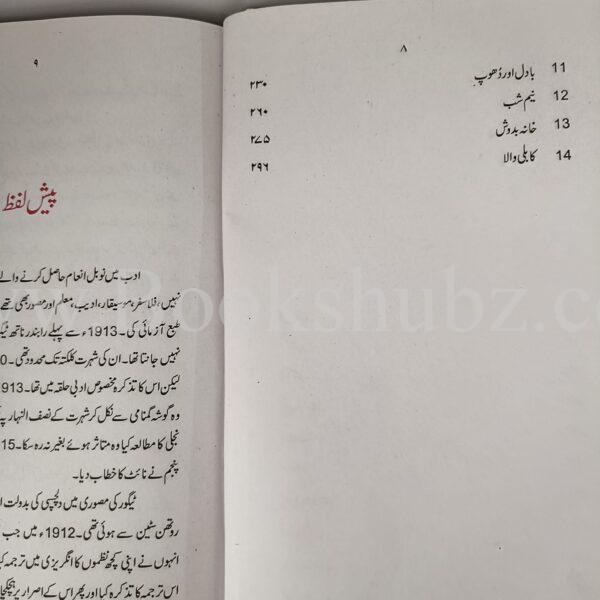 ۸
11 بادل اور دُھوپ ۲۳۰
12 نیم شب ۲۶۰
13 خانہ بدوش ۲۷۵
14 کابلی والا ۲۹۶
۹
پیش لفظ
ادب میں نوبل انعام حاصل کرنے والے
نہیں، فلاسفر، موسیقار، ادیب، معلم اور مصور بھی تھے
طبع آزمائی کی۔ 1913ء سے پہلے رابندر ناتھ ٹیگو
نہیں جانتا تھا۔ ان کی شہرت کلکتہ تک محدود تھی۔ 0
لیکن اس کا تذکرہ مخصوص ادبی حلقہ میں تھا۔ 1913
وہ گوشہ گمنامی سے نکل کر شہرت کے نصف النہار پہ
نجلی کا مطالعہ کیا وہ متاثر ہوئے بغیر نہ رہ سکا۔ 15
پنجم نے نائٹ کا خطاب دیا۔
ٹیگور کی مصوری میں دلچسپی کی بدولت ا
روتھن سٹین سے ہوئی تھی۔ 1912ء میں جب
انہوں نے اپنی کچھ نظموں کا انگریزی میں ترجمہ کیا
اس ترجمہ کا تذکرہ کیا اور پھر اس کے اصرار پر ہچکچا
Bookshubz.co